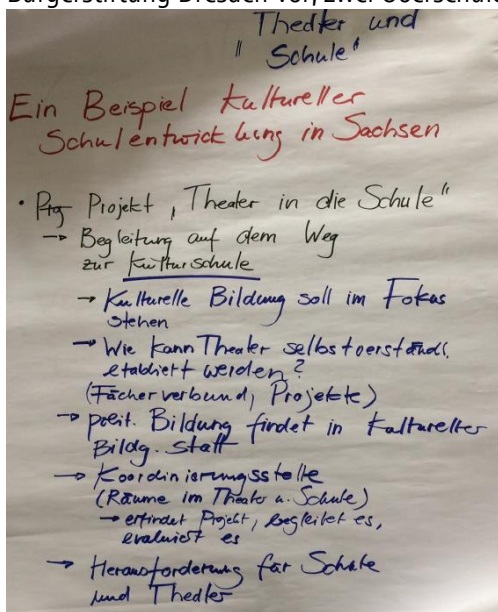 Bürgerstiftung Dresden vor, zwei Oberschule
Theater und
" Schule"
Ein Beispiel kultureller
Schulentwicklung in Sachsen
• Prg Projekt „Theater in die Schule"
→ Begleitung auf dem Weg
zur Kulturschule
→ Kulturelle Bildung soll im Fokus
stehen
→ Wie kann Theater selbstverständl.
etabliert werden?
(Fächerverbund, Projekte)
→ polit. Bildung findet in kultureller
Bildg. statt
→ Koordinierungsstelle
(Räume im Theater u. Schule)
→ erfindet Projekt, begleitet es,
evaluiert es
→ Herausforderung für Schule
und Theater